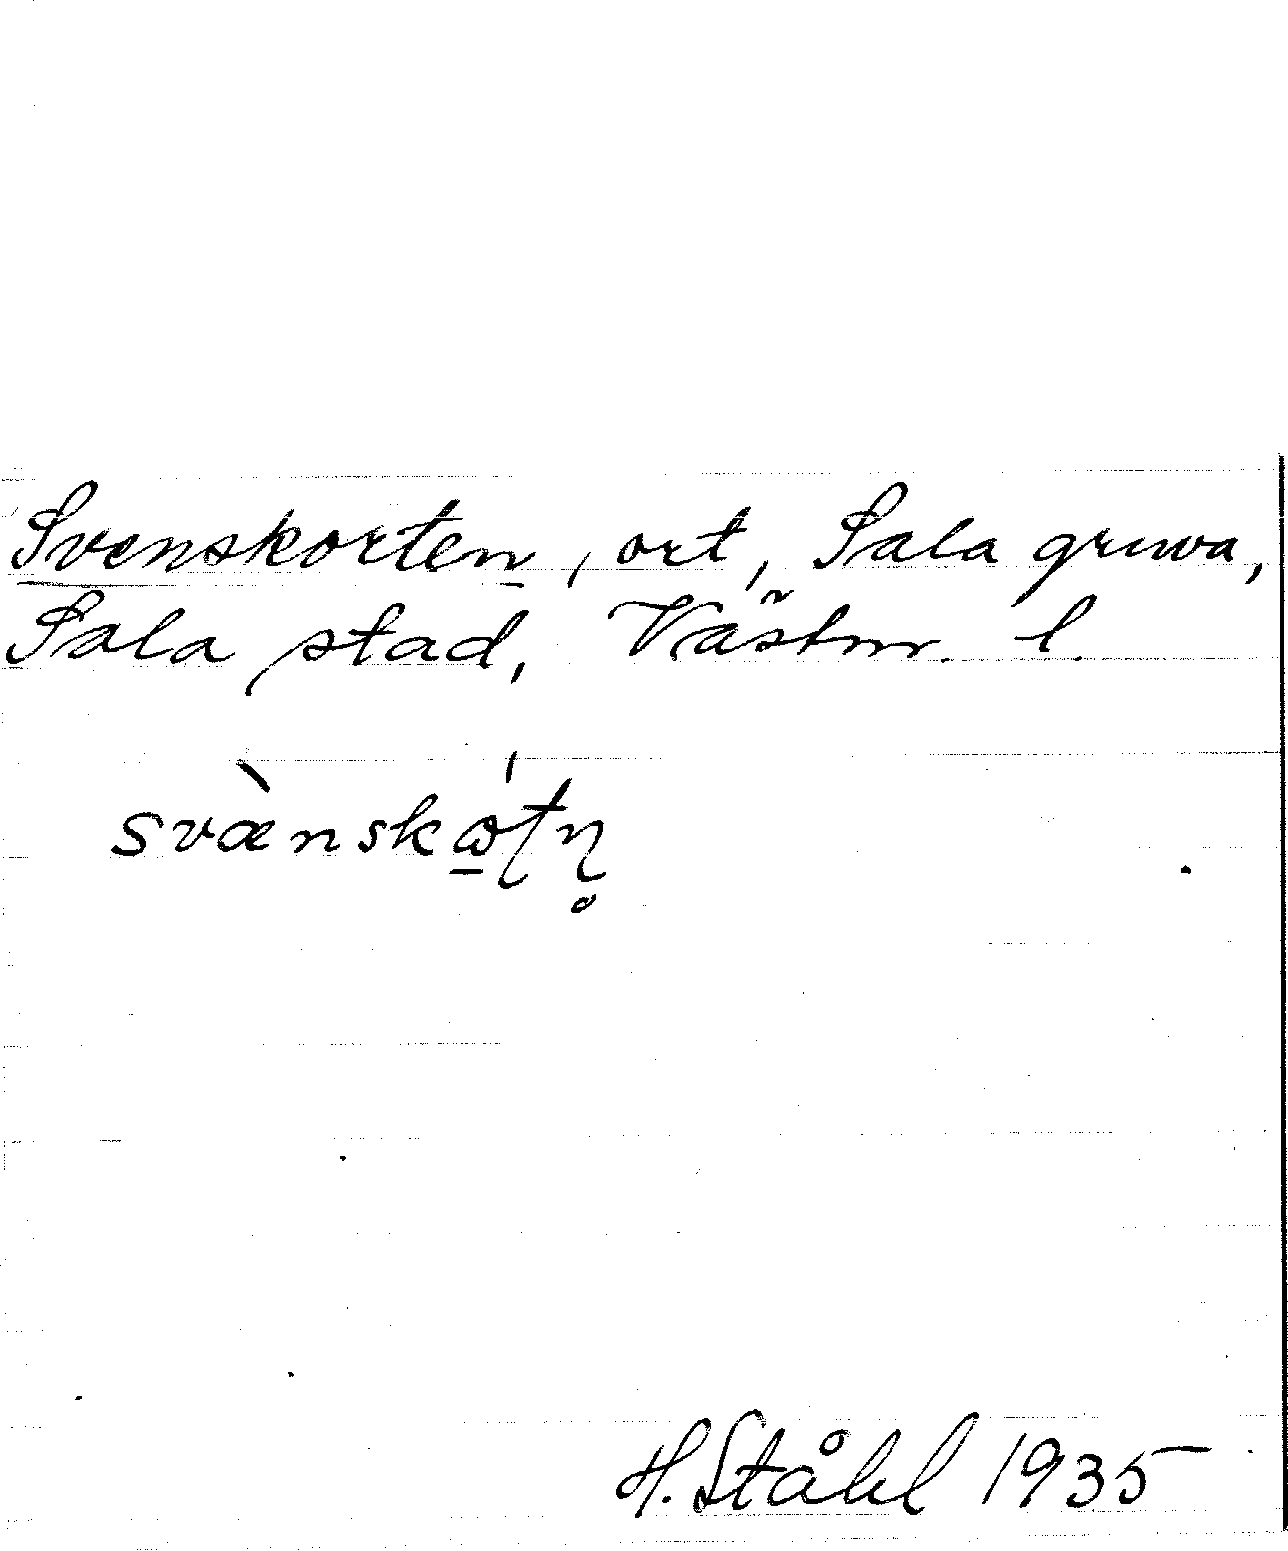 Svenskorten, ort, Sala gruva,
Sala stad, Västm. l.
svæ̀nskώ̱ʈɳ̥
H. Ståhl 1935